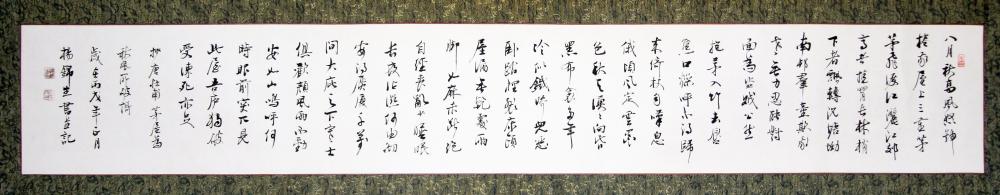 八月秋高風怒號
捲我屋上三重茅
茅飛渡江灑江郊
高者掛罥長林梢
下者飄轉沉塘坳
南村群童欺我
老無力忍能對
面為盜賊公然
抱茅入竹去唇
焦口燥呼不得歸
來倚杖自嘆息
俄頃風定雲墨
色秋天漠漠向昏
黑布衾多年
冷似鐵嬌兒惡
臥踏裡裂床頭
屋漏無乾處雨
腳如麻未斷絕
自經喪亂少睡眠
長夜沾濕何由徹
安得廣廈千萬
間大庇天下寒士
俱歡顏風雨不動
安如山嗚呼何
時眼前突兀見
此屋吾廬獨破
受凍死亦足
抄唐杜甫茅屋為
秋風所破歌
歲在丙戌年正月
楊錦生書並記